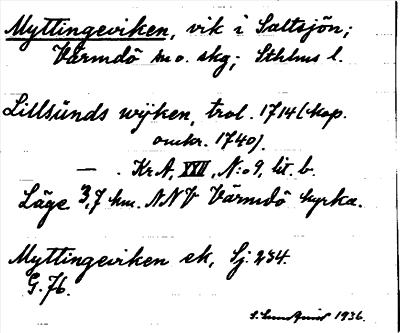 Myttingeviken, vik i Saltsjön;
Värmdö sn o. skg; Sthlms l.
Lillsunds wijken, trol. 1714 (kop.
omkr. 1740).
— . KrA, XVII, N:o 9, lit. b.
Läge 3,7 km. NNV Värmdö kyrka.
Myttingeviken ek, Sj. 234.
G. 76.
S. Lundquist 1936.